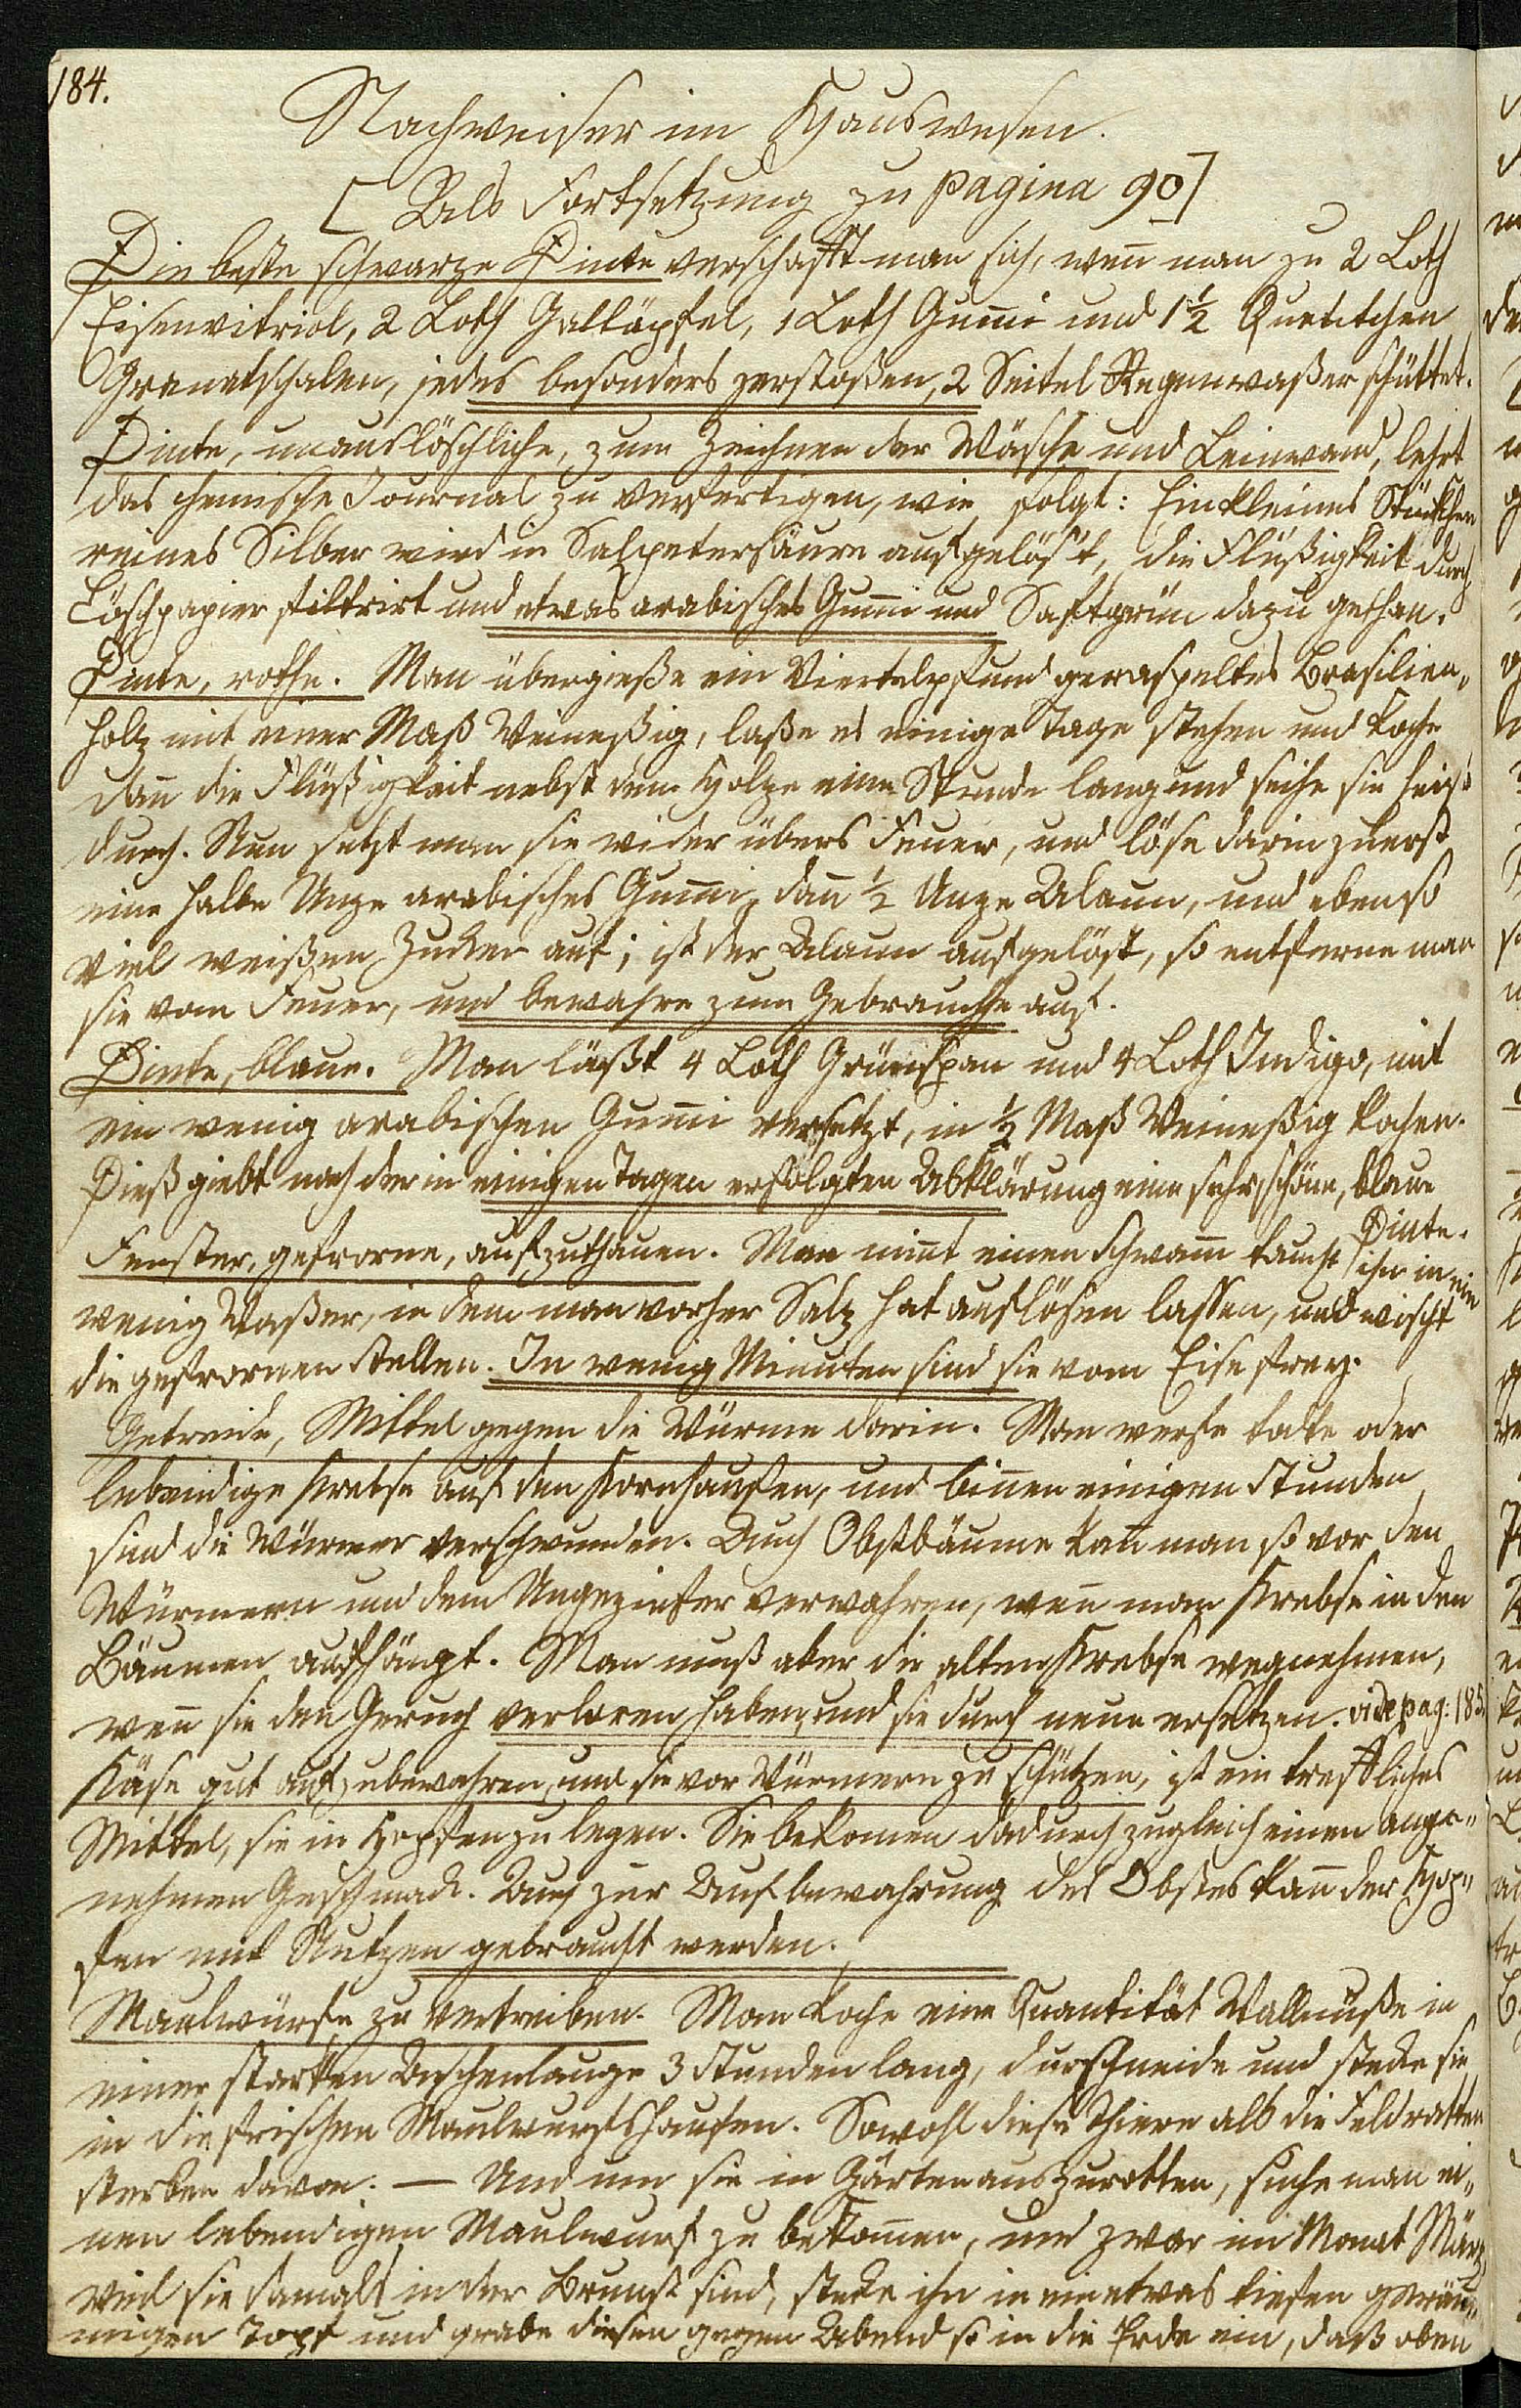 184.
Nachweiser im Hauswesen.
[Als Fortsetzung zu pagina 90]
Die beste schwarze Dinte verschafft man sich, weñ man zu 2 Loth
Eisenvitriol, 2 Loth Galläpfel, 1 Loth Gum̃i und 1½ Quentchen
Granatschalen, jedes besonders zerstoßen, 2 Seitel Regenwaßer schüttet.
Dinte, unauslöschliche, zum Zeichnen der Wäsche und Leinwand, lehrt
das chemische Journal zu verfertigen, wie folgt: Ein kleines Stückchen
reines Silber wird in Salpetersäure aufgelös't, die Flüßigkeit durch
Löschpapier filtrirt und etwas arabisches Gum̃i und Saftgrün dazu gethan.
Dinte, rothe. Man übergieße ein Viertelpfund geraspeltes Brasilien„
holz mit einer Maß Weineßig, laße es einige Tage stehen und koche
dañ die Flüßigkeit nebst dem Holze eine Stunde lang und seihe sie heiß
durch. Nun setzt man sie wider übers Feuer, und löse darin zuerst
eine halbe Unze arabisches Gum̃i, dañ ½ Unze Alaun, und ebenso
viel weißen Zucker auf; ist der Alaun aufgelöst, so entferne man
sie vom Feuer, und bewahre zum Gebrauche auf.
Dinte, blaue. Man läßt 4 Loth Grünspan und 4 Loth Indigo, mit
ein wenig arabischen Gum̃i versetzt, in ½ Maß Weineßig kochen.
Dieß giebt nach der in einigen Tagen erfolgten Abklärung eine sehr schöne, blaue
Dinte.
Fenster, gefrorne, aufzuthauen. Man nim̃t einen Schwam̃ taucht ihn in ein
wenig Waßer, in dem man vorher Salz hat auflösen lassen, und wischt
die gefrornen Stellen. In wenig Minuten sind sie vom Eise frey.
Getreide, Mittel gegen die Würme darin. Man werfe todte oder
lebendige Krebse auf den Kornhaufen, und biñen einigen Stunden
sind die Würmer verschwunden. Auch Obstbäume kañ man so vor den
Würmern und dem Ungeziefer verwahren, weñ man Krebse in den
Bäumen aufhängt. Man muß aber die alten Krebse wegnehmen,
weñ sie den Geruch verloren haben, und sie durch neue ersetzen. vide pag. 185.
Käse gut aufzubewahren, und sie vor Würmern zu schützen, ist ein treffliches
Mittel, sie in Hopfen zu legen. Sie bekom̃en dadurch zugleich einen ange„
nehmen Geschmack. Auch zur Aufbewahrung des Obstes kañ der Hop„
fen mit Nutzen gebraucht werden.
Maulwürfe zu vertreiben. Man koche eine Quantität Wallnüße in
einer starken Aschenlauge 3 Stunden lang, durchschneide und stecke sie
in die frischen Maulwurfshaufen. Sowohl diese Thiere als die Feldratten
sterben davon. — Und um sie in Gärten auszurotten, suche man ei„
nen lebendigen Maulwurf zu bekom̃en, und zwar im Monat März,
weil sie damals in der Brunst sind, stecke ihn in ein etwas tiefen geräu„
migen Topf und grabe diesen gegen Abend so in die Erde ein, daß oben